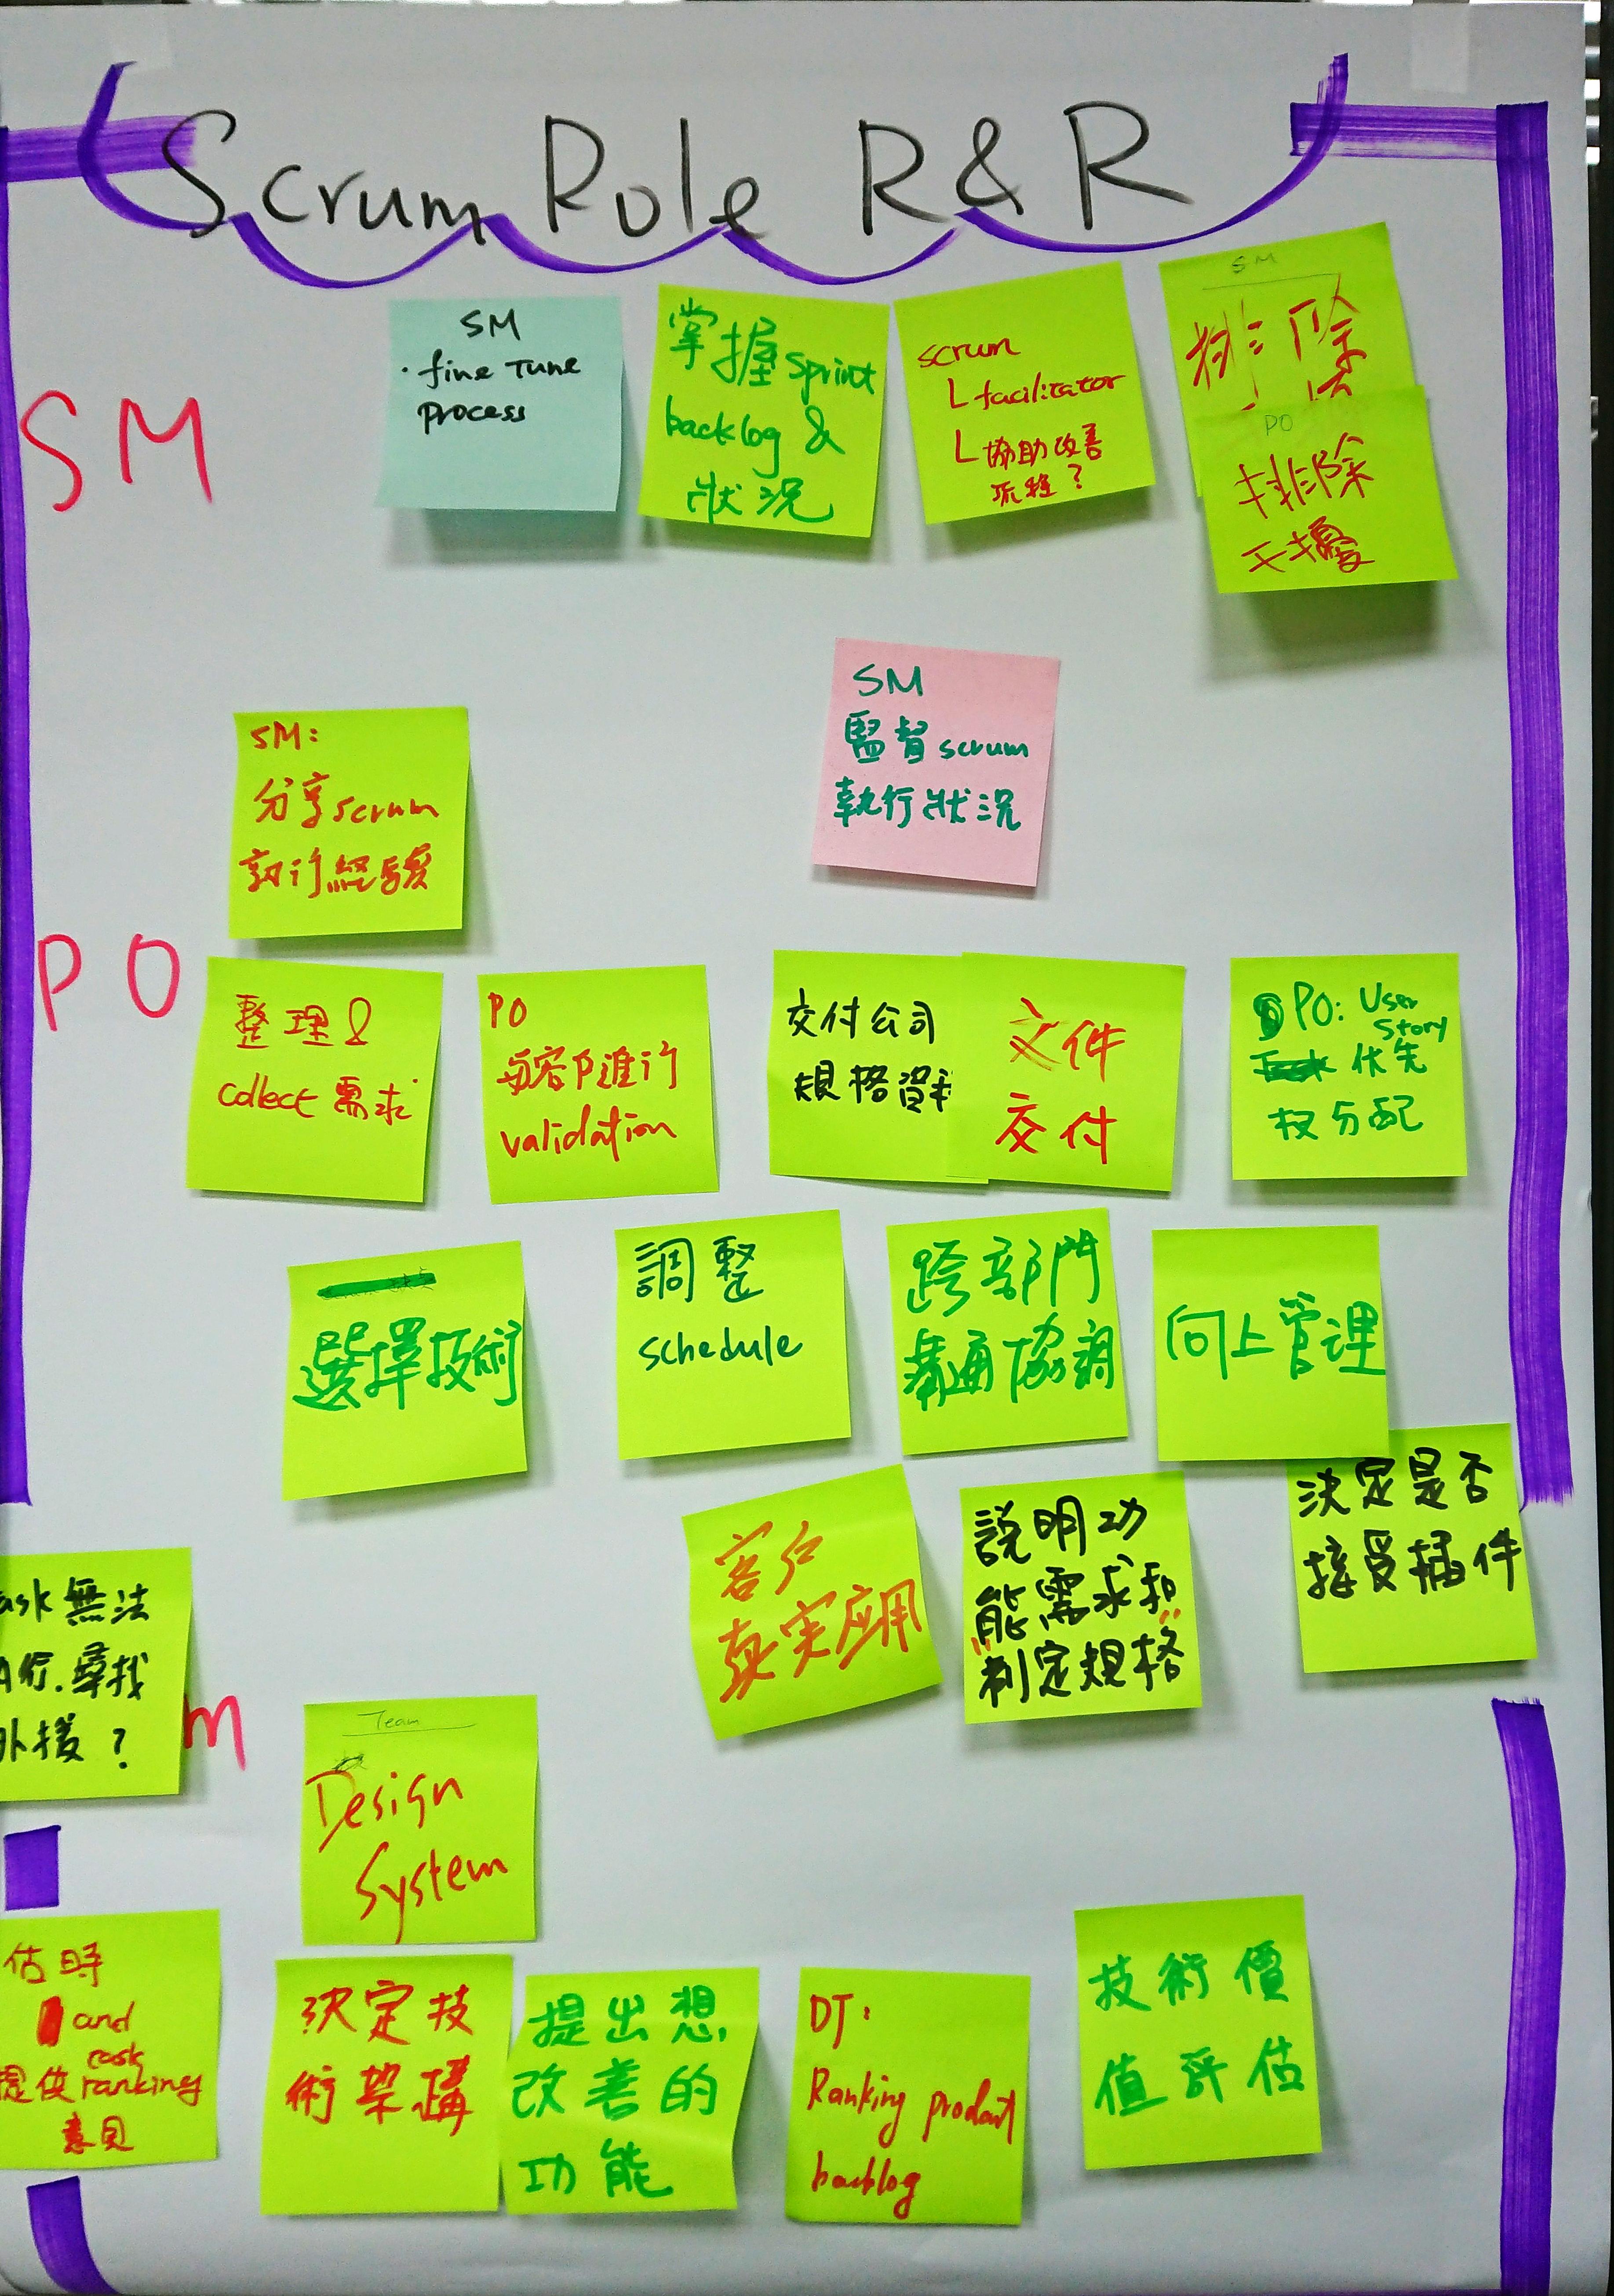 Scrum Role R&R
SM
SM
・fine Tune
process
掌握sprint
backlog &
狀況
scrum
L facilitator
L 協助改善
流程？
SM
排除
PO
排除
干擾
SM:
分享scrum
執行經驗
SM
監督scrum
執行狀況
PO
整理&
collect 需求
PO
與客戶進行
validation
交付公司
規格資料
文件
交付
PO: User
Story
优先
权分配
選擇技術
調整
schedule
跨部門
溝通協調
向上管理
客户
真实应用
説明功
能需求和
"制定規格"
決定是否
接受插件
ask 無法
行.尋找
外援？
m
Team
Design
System
估時
and
task
提供ranking
意見
決定技
術架構
提出想
改善的
功能
DT:
Ranking product
backlog
技術價
值評估